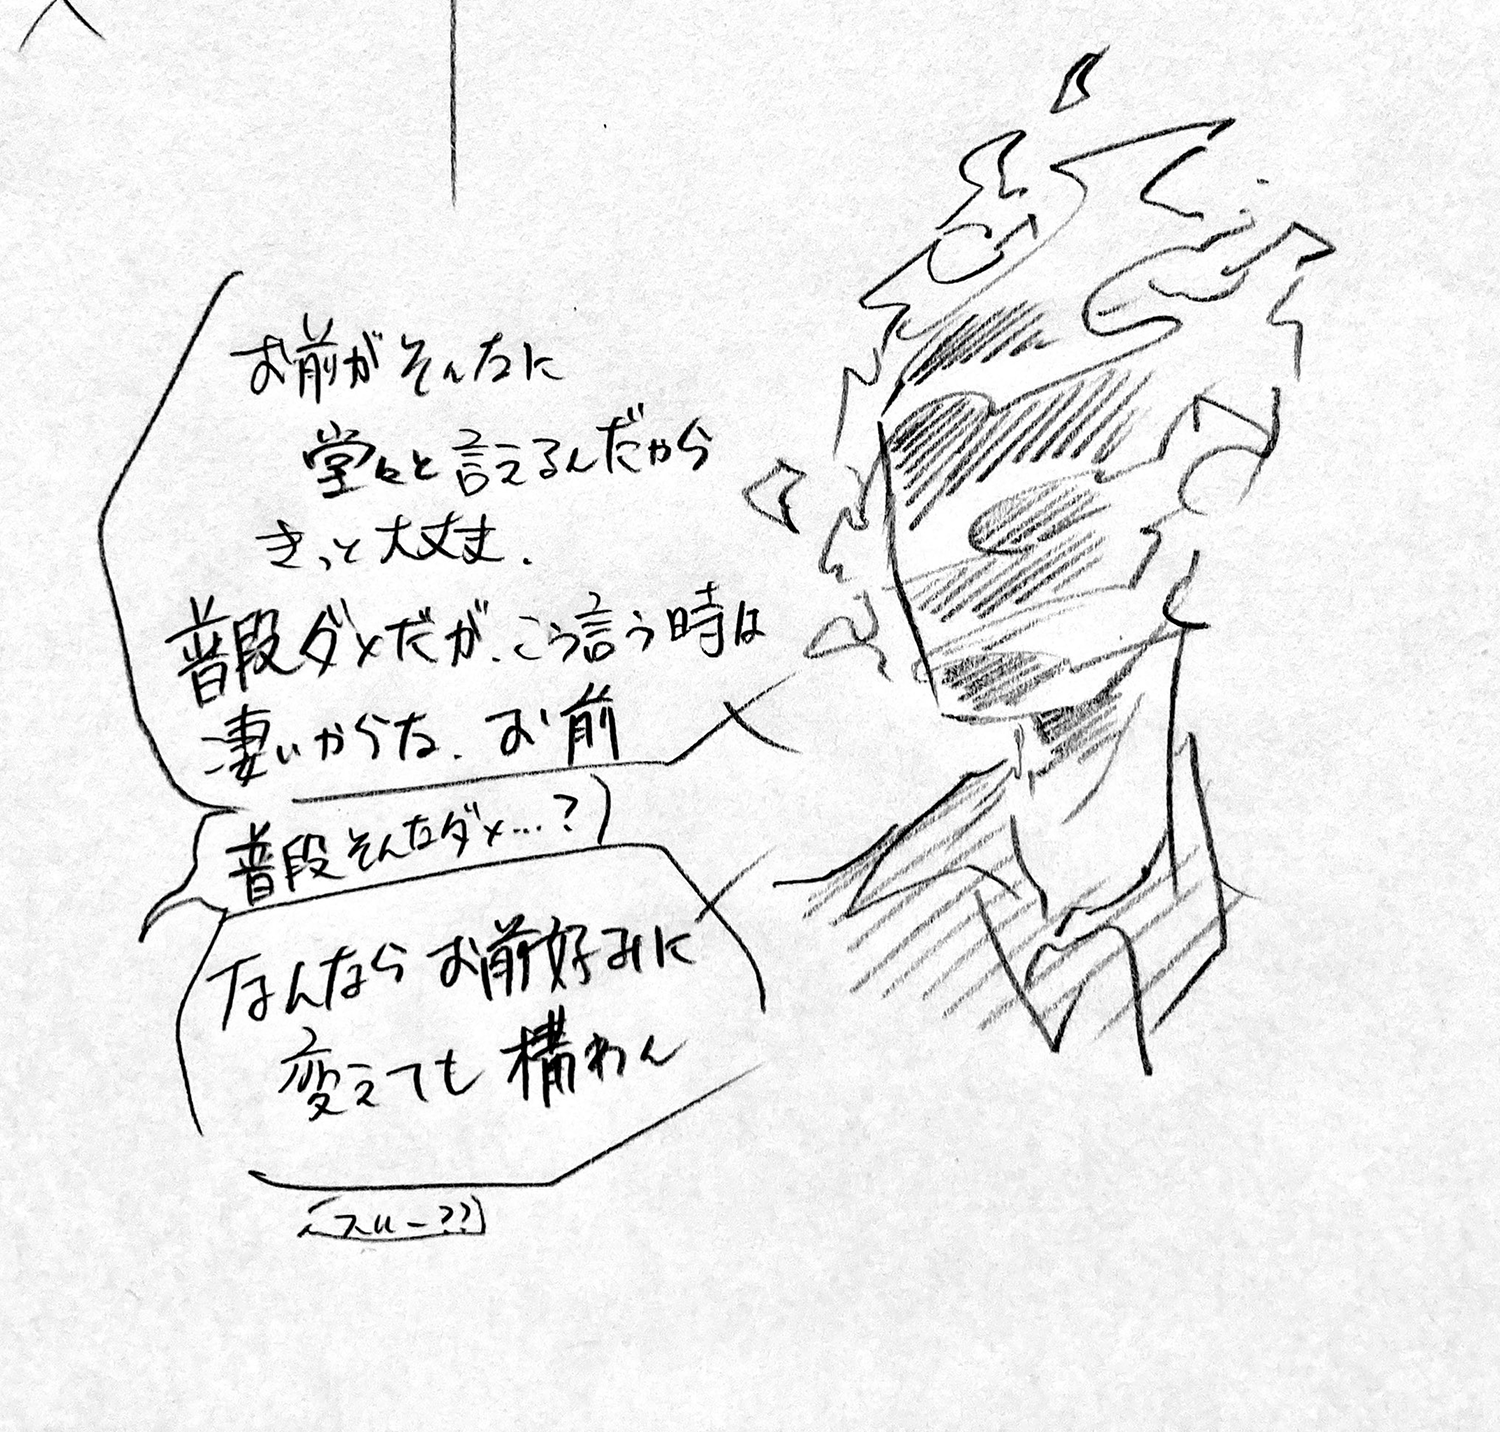 お前がそんなに
堂々と言えるんだから
きっと大丈夫.
普段ダメだが、こう言う時は
凄いからな. お前
普段そんなダメ…?
なんならお前好みに
変えても構わん
スルー??